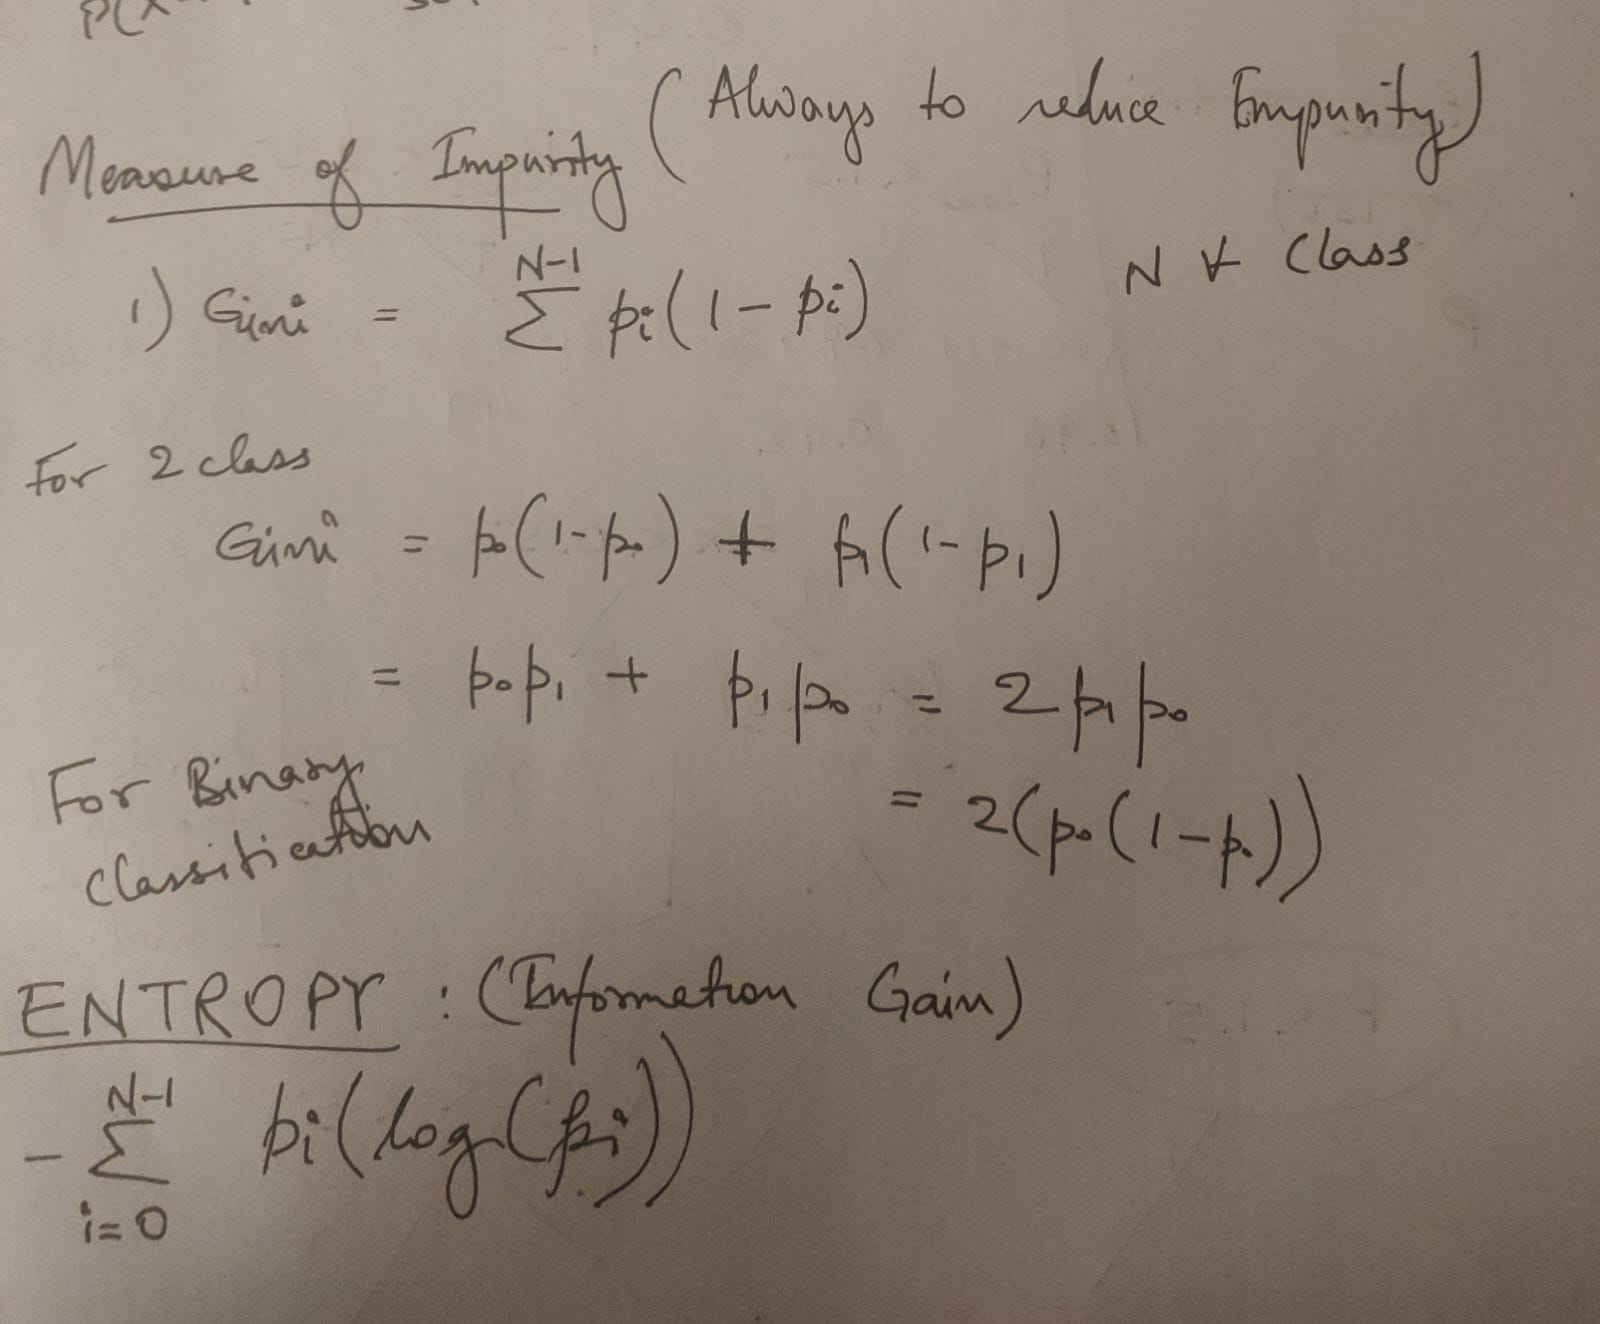 P(X
Measure of Impurity (Always to reduce Impurity)
1) Gini = Σ^{N-1} pi(1 - pi) N Class
For 2 class
Gini = p0(1-p0) + p1(1-p1)
= p0p1 + p1p0 = 2p1p0
= 2(p0(1-p0))
For Binary
Classification
ENTROPY : (Information Gain)
- Σ_{i=0}^{N-1} pi(log(pi))